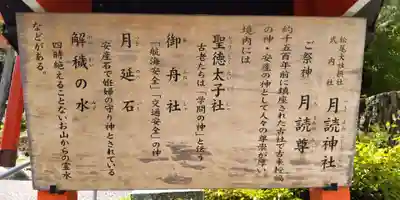 松尾大社摂社
式内社
月読神社
ご祭神 月読尊
約千五百年前に鎮座された古社で古来松尾
の神・安産の神として人々の尊崇が厚い
境内には
聖徳太子社
古老たちは「学問の神」と伝う
御舟社
「航海安全」「交通安全」の神
月延石
安産石で妊婦の守り神とされている
解穢の水
四時絶えることないお山からの霊水
などがある。